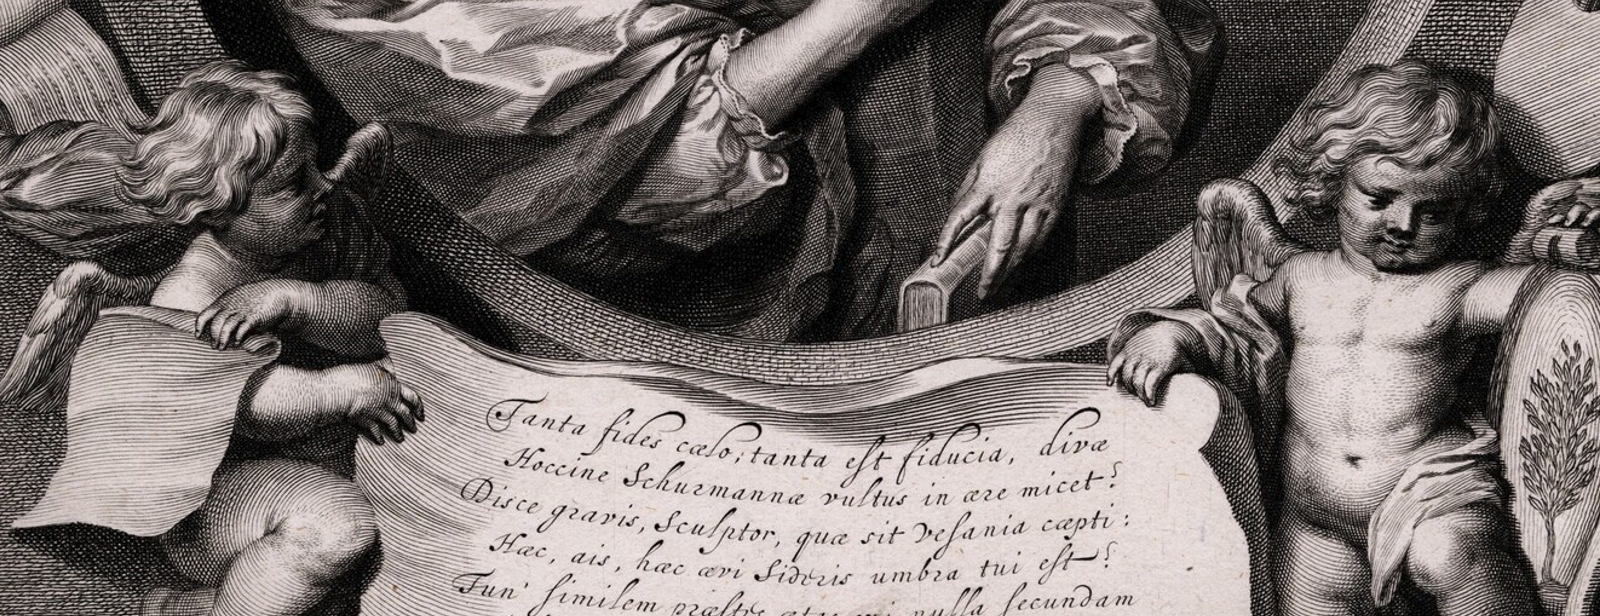 Tanta fides cælo; tanta est fiducia, divæ
Hoccine Schurmannæ vultus in ære micet?
Disce gravis, Sculptor, quæ sit vesania cæpti:
Hæc, ais, hæc ævi Sideris umbra tui est?
Tun' similem præstes ætas cui nulla secundam